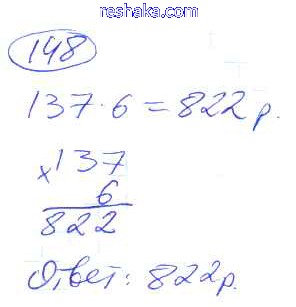 reshaka.com
148
137 · 6 = 822 р.
× 137
6
822
Ответ: 822 р.